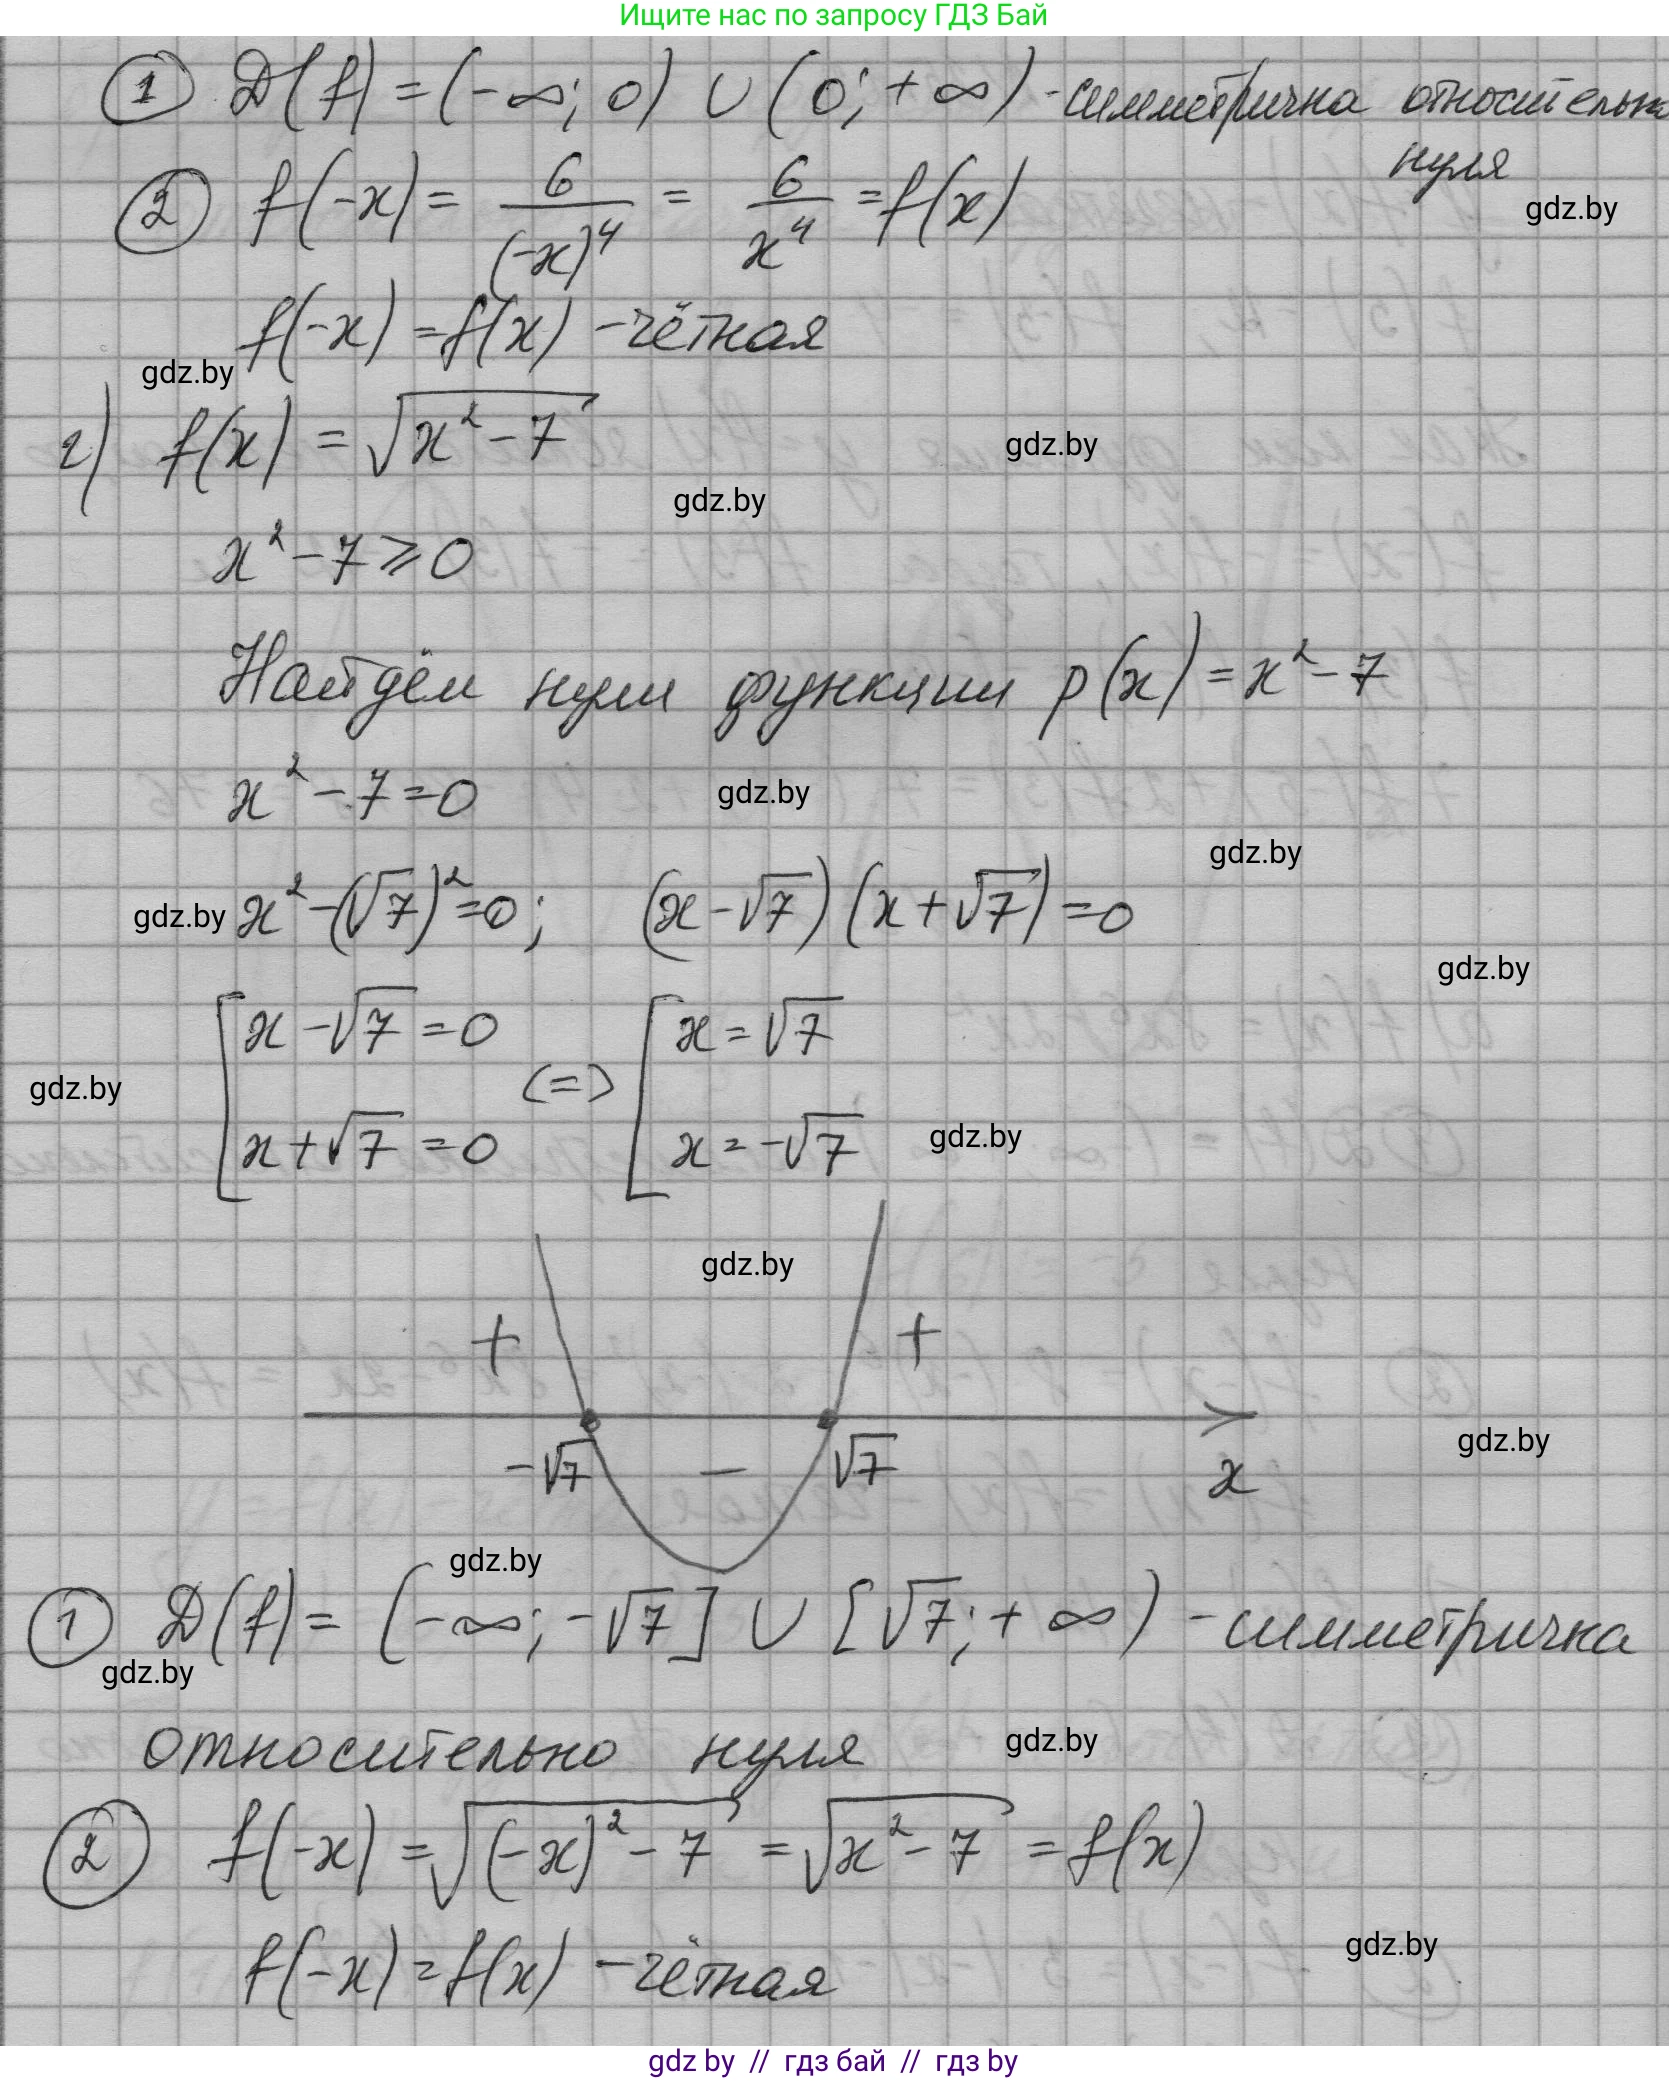 Ищите нас по запросу ГДЗ Бай
① D(f) = (-∞; 0) ∪ (0; +∞) - симметрична относительно
нуля
gdz.by
② f(-x) = 6/(-x)⁴ = 6/x⁴ = f(x)
f(-x) = f(x) - чётная
gdz.by
г) f(x) = √(x² - 7)
gdz.by
gdz.by
x² - 7 ⩾ 0
Найдём нули функции p(x) = x² - 7
x² - 7 = 0
gdz.by
gdz.by
gdz.by
x² - (√7)² = 0; (x - √7)(x + √7) = 0
gdz.by
[x - √7 = 0 (=) [x = √7
gdz.by
x + √7 = 0 x = -√7
gdz.by
gdz.by
+ +
-√7 - √7 x
gdz.by
gdz.by
① D(f) = (-∞; -√7] ∪ [√7; +∞) - симметрична
gdz.by
относительно нуля
gdz.by
② f(-x) = √((-x)² - 7) = √(x² - 7) = f(x)
f(-x) = f(x) - чётная
gdz.by
gdz by // гдз бай // гдз by